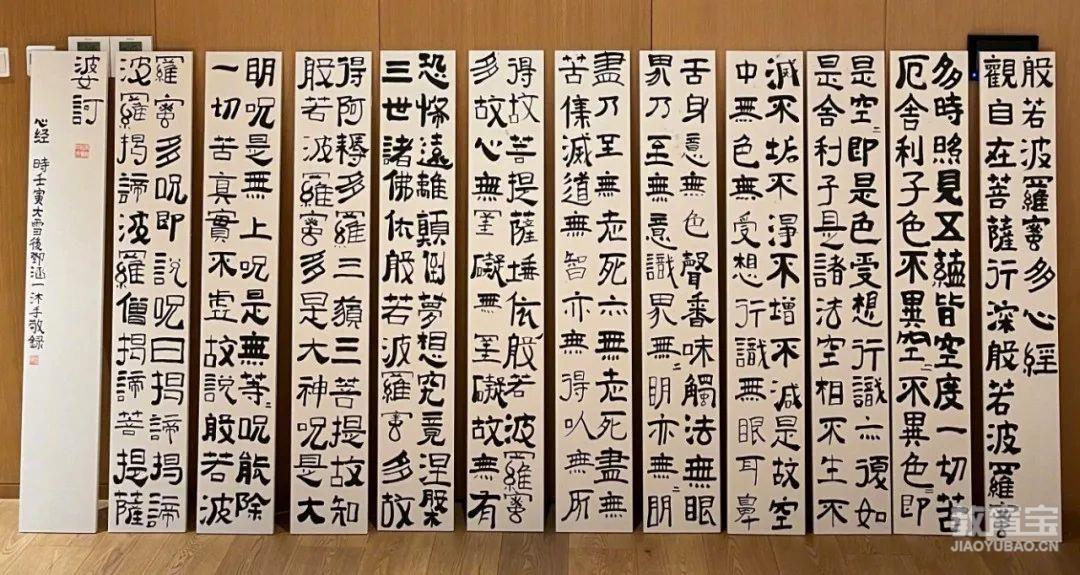 般若波羅蜜多心經
觀自在菩薩行深般若波羅蜜
多時照見五蘊皆空度一切苦
厄舍利子色不異空〻不異色即
是空〻即是色受想行識亦復如
是舍利子是諸法空相不生不
滅不垢不淨不增不減是故空
中無色無受想行識無眼耳鼻
舌身意無色聲香味觸法無眼
界乃至無意識界無〻明亦無〻明
盡乃至無老死亦無老死盡無
苦集滅道無智亦無得以無所
得故菩提薩埵依般若波羅蜜
多故心無罣礙無罣礙故無有
恐怖遠離顛倒夢想究竟涅槃
三世諸佛依般若波羅蜜多故
得阿耨多羅三藐三菩提故知
般若波羅蜜多是大神呪是大
明呪是無上呪是無等〻呪能除
一切苦真實不虛故說般若波
羅蜜多呪即說呪曰揭諦揭諦
波羅揭諦波羅僧揭諦菩提薩
婆訶
心经 時壬寅大雪後鄧涵一沐手敬録
教育宝
JIAOYUBAO.CN